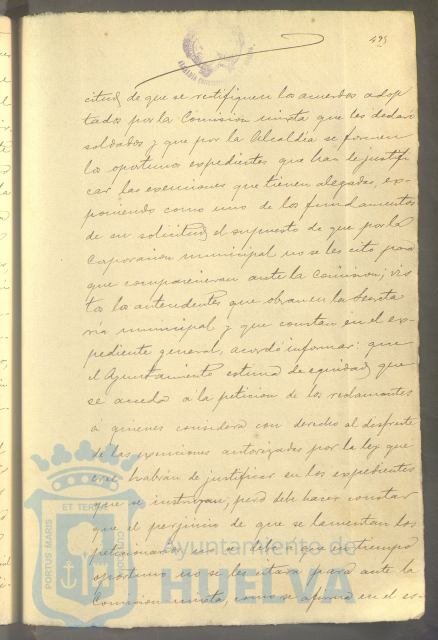 495
citud de que se rectifiquen los acuerdos adop
tados por la Comisión mixta que les declaró
soldados y que por la Alcaldía se formen
los oportunos expedientes que han de justifi
car las exenciones que tienen alegadas, ex-
poniendo como uno de los fundamentos
de su solicitud el supuesto de que por la
Corporación municipal no se les citó para
que comparecieran ante la Comisión; vis
tos los antecedentes que obran en la Secreta
ría municipal y que constan en el ex-
pediente general, acordó informar: que
el Ayuntamiento estima de equidad que
se acceda a la petición de los reclamantes
á quienes considera con derecho al disfrute
de las exenciones autorizadas por la ley que
habrán de justificar en los expedientes
que se instruyan, pero debe hacer constar
que el perjuicio de que se lamentan los
peticionarios, no se debe a que en tiempo
oportuno no se les citara para ante la
Comisión mixta, como se afirma en el es-
PORTUS MARIS ET TERRAE CUSTODIA
Ayuntamiento de
HUELVA